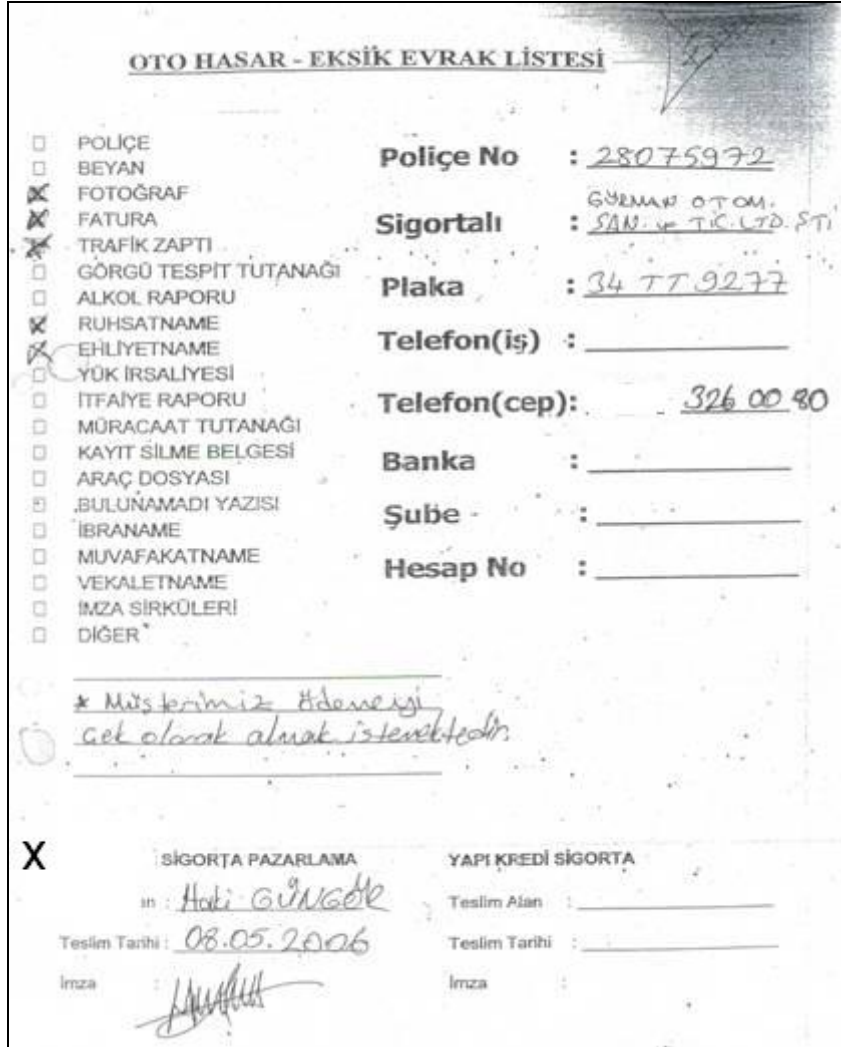 OTO HASAR - EKSİK EVRAK LİSTESİ
POLİÇE
BEYAN
FOTOĞRAF
FATURA
TRAFİK ZAPTI
GÖRGÜ TESPİT TUTANAĞI
ALKOL RAPORU
RUHSATNAME
EHLİYETNAME
YÜK İRSALİYESİ
İTFAİYE RAPORU
MÜRACAAT TUTANAĞI
KAYIT SİLME BELGESİ
ARAÇ DOSYASI
BULUNAMADI YAZISI
İBRANAME
MUVAFAKATNAME
VEKALETNAME
İMZA SİRKÜLERİ
DİĞER
Poliçe No : 28075972
Sigortalı : GÜRMAN OTOM.
SAN. ve TİC. LTD. ŞTİ
Plaka : 34 TT 9277
Telefon(iş) :
Telefon(cep): 326 00 80
Banka :
Şube :
Hesap No :
* Müşterimiz ödemeyi
çek olarak almak istemektedir.
X
SİGORTA PAZARLAMA
ın : Haki GÜNGÖR
Teslim Tarihi : 08.05.2006
İmza :
YAPI KREDİ SİGORTA
Teslim Alan :
Teslim Tarihi :
İmza :